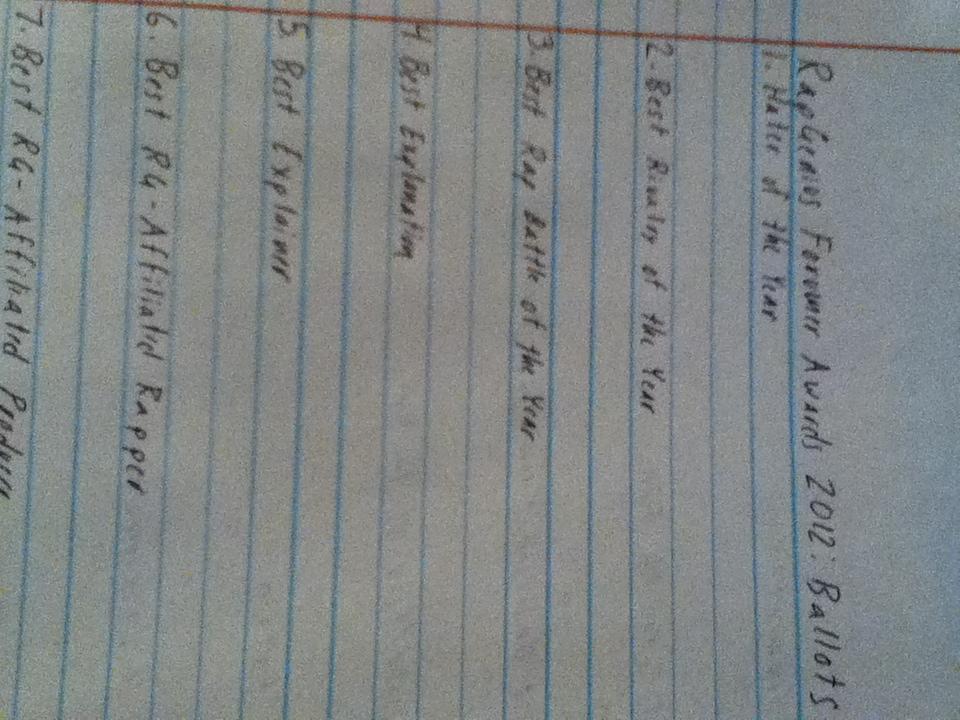 RapGenius Forumer Awards 2012: Ballots
1. Hater of the Year
2. Best Rivalry of the Year
3. Best Rap Battle of the Year
4. Best Explanation
5. Best Explainer
6. Best RG-Affiliated Rapper
7. Best RG-Affiliated Producer